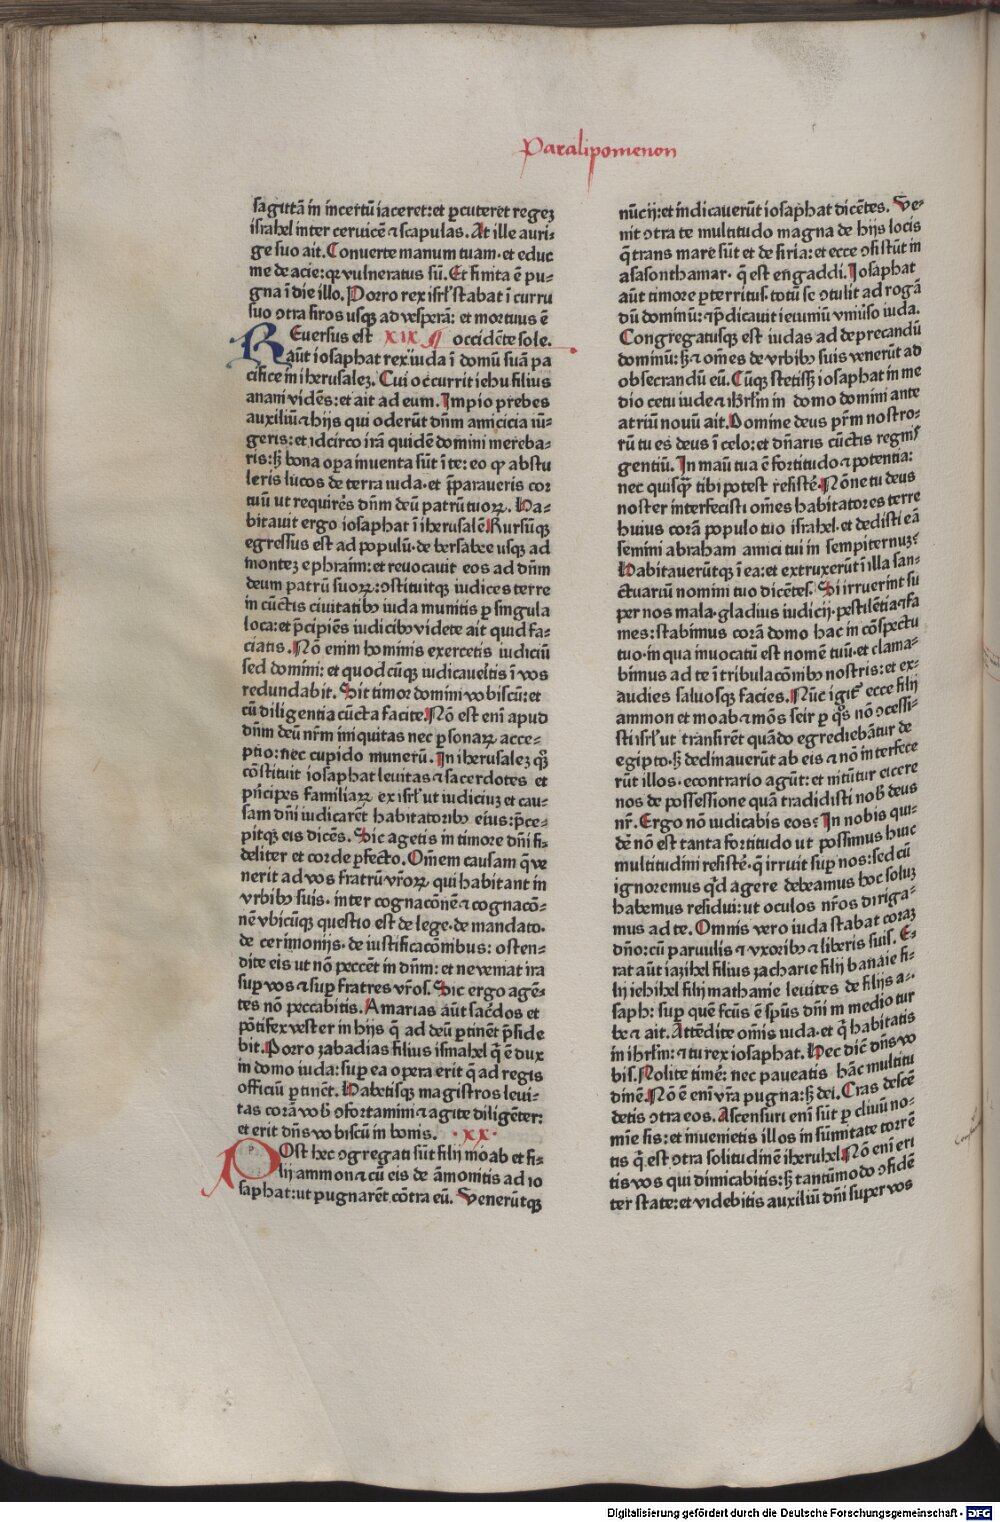 Paralipomenon
sagittā in incertū iaceret: et ꝑcuteret regeꝫ
israhel inter ceruicē ⁊ scapulas. At ille auri-
ge suo ait. Conuerte manum tuam· et educ
me de acie: qꝛ vulneratus sū. Et finita ē pu-
gna ī die illo. Porro rex isrl̓ stabat ī curru
suo ↄtra siros usqꝫ ad vesperā: et mortuus ē
REuersus est XIX ¶ occidēte sole.
aūt iosaphat rex iuda ī domū suā pa
cifice in iherusaleꝫ. Cui occurrit iehu filius
anani vidēs: et ait ad eum. Impio prebes
auxiliū ⁊ hijs qui oderūt dn̄m amicicia iū-
geris: et idcirco irā quidē domini mereba-
ris: sꝫ bona oꝑa inuenta sūt ī te: eo qꝙ abstu
leris lucos de terra iuda· et p̄paraueris cor
tuū ut requirēs dn̄m deū patrū tuoꝝ. Ha-
bitauit ergo iosaphat ī iherusalē. Rursūqꝫ
egressus est ad populū· de bersabee usqꝫ ad
monteꝫ ephraim: et reuocauit eos ad dn̄m
deum patrū suoꝝ: ↄstituitqꝫ iudices terre
in cūctis ciuitatibꝫ iuda munitis ꝑ singula
loca: et p̄cipiēs iudicibꝫ videte ait quid fa-
ciatis. Nō enim hominis exercetis iudiciū
sed domini: et quodcūqꝫ iudicaueītis ī vos
redundabit. Sit timor domini vobiscū: et
cū diligentia cūcta facite. Nō est enī apud
dn̄m deū nr̄m iniquitas nec ꝑsonaꝝ acce-
ptio: nec cupido munerū. In iherusaleꝫ qꝫ
cōstituit iosaphat leuitas ⁊ sacerdotes et
pn̄cipes familiaꝝ ex isrl̓ ut iudiciuꝫ et cau-
sam dn̄i iudicarēt habitatoribꝫ eius: p̄ce-
pitqꝫ eis dicēs. Sic agetis in timore dn̄i fi-
deliter et corde ꝑfecto. Om̄em causam q̄ ve
nerit ad vos fratrū vr̄oꝝ qui habitant in
vrbibꝫ suis· inter cognacōnē ⁊ cognacō-
nē vbicūqꝫ questio est de lege· de mandato·
de cerimonijs· de iustificacōnibus: osten-
dite eis ut nō peccēt in dn̄m: et ne veniat ira
suꝑ vos ⁊ suꝑ fratres vr̄os. Sic ergo agē-
tes nō peccabitis. Amarias aūt sac̄dos et
pōtifex vester in hijs q̄ ad deū ꝑtinēt p̄side
bit. Porro zabadias filius ismahel q̄ ē dux
in domo iuda: suꝑ ea opera erit q̄ ad regis
officiū ꝑtinēt. Habetisqꝫ magistros leui-
tas corā vob̄ ↄfortamini ⁊ agite diligēter:
et erit dn̄s vobiscū in bonis. ·XX·
POst hec ↄgregati sūt filij moab et fi-
lij ammon ⁊ cū eis de āmonitis ad io
saphat: ut pugnarēt cōtra eū. Venerūtqꝫ
nūcij: et indicauerūt iosaphat dicētes. Ve-
nit ↄtra te multitudo magna de hijs locis
q̄ trans mare sūt et de siria: et ecce ↄsistūt in
asasonthamar· q̄ est engaddi. Iosaphat
aūt timore ꝑterritus· totū se ↄtulit ad rogā
dū dominū: ⁊ p̄dicauit ieiuniū vniūso iuda.
Congregatusqꝫ est iudas ad deprecandū
dominū: sꝫ ⁊ om̄es de vrbibꝫ suis venerūt ad
obsecrandū eū. Cūqꝫ stetissꝫ iosaphat in me
dio cetu iude ⁊ ihrl̄m in domo domini ante
atriū nouū ait. Domine deus pr̄m nostro-
rū tu es deus ī celo: et dn̄aris cūctis regnis
gentiū. In manū tua ē fortitudo ⁊ potentia:
nec quisqꝙ̄ tibi potest resistē. Nōne tu deus
noster interfecisti om̄es habitatores terre
huius corā populo tuo israhel· et dedisti eā
semini abraham amici tui in sempiternuꝫ?
Habitauerūtqꝫ ī ea: et extruxerūt ī illa san-
ctuariū nomini tuo dicētes. Si irruerint su
per nos mala· gladius iudicij· pestilētia ⁊ fa
mes: stabimus corā domo hac in cōspectu
tuo· in qua inuocatū est nomē tuū· et clama-
bimus ad te ī tribulacōnibꝫ nostris: et ex-
audies saluosqꝫ facies. Nūc igit̄ ecce filij
ammon et moab ⁊ mōs seir ꝑ qͦs nō ↄcessi-
sti isrl̓ ut transirēt quādo egrediebātur de
egipto· sꝫ declinauerūt ab eis ⁊ nō interfece
rūt illos· econtrario agūt: et nitūtur eicere
nos de possessione quā tradidisti nob̄ deus
nr̄. Ergo nō iudicabis eos? In nobis qui-
dē nō est tanta fortitudo ut possimus huic
multitudini resistē· q̄ irruit suꝑ nos: sed cū
ignoremus qd̄ agere debeamus hoc soluꝫ
habemus residui: ut oculos nr̄os diriga-
mus ad te. Omnis vero iuda stabat coraꝫ
dn̄o: cū paruulis ⁊ vxoribꝫ ⁊ liberis suis. E-
rat aūt iazihel filius zacharie filij banaie fi-
lij iehihel filij mathanie leuites de filijs a-
saph: suꝑ quē fcūs ē spūs dn̄i in medio tur
be ⁊ ait. Attēdite om̄is iuda· et q̄ habitatis
in ihrl̄m: ⁊ tu rex iosaphat. Hec dic̄ dn̄s vo
bis. Nolite timē: nec paueatis hāc multitu
dinē. Nō ē enī vr̄a pugna: sꝫ dei. Cras descē
detis ↄtra eos. Ascensuri enī sūt ꝑ cliuū no-
mīe sis: et inuenietis illos in sūmitate torrē
tis q̄ est ↄtra solitudinē iheruhel. Nō enī eri
tis vos qui dimicabitis: sꝫ tantūmodo ↄfidē
ter state: et videbitis auxiliū dn̄i super vos
Digitalisierung gefördert durch die Deutsche Forschungsgemeinschaft - DFG